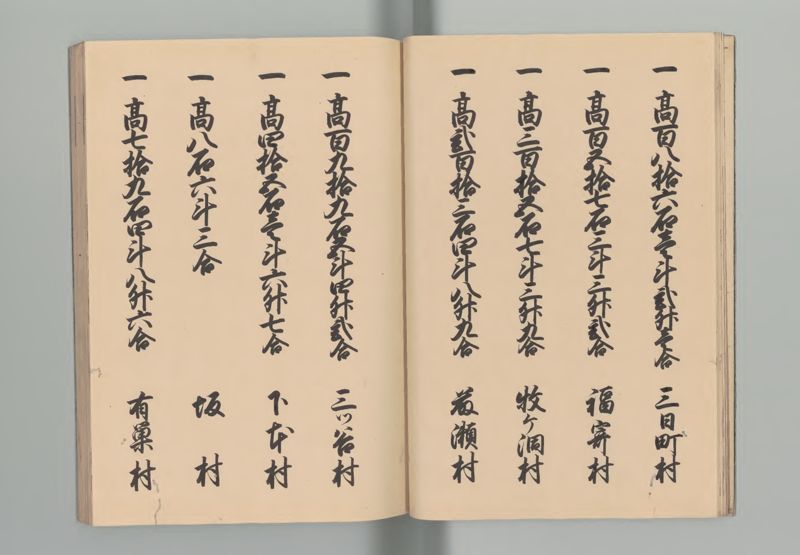 一 高百八拾六石壱斗弐升壱合 三日町村
一 高百五拾七石三斗三升弐合 福寄村
一 高三百拾五石七斗三升九合 牧ケ洞村
一 高弐百拾三石四斗八升九合 藤瀬村
一 高百九拾九石五斗四升弐合 三ツ谷村
一 高四拾五石壱斗六升七合 下本村
一 高八石六斗三合 坂村
一 高七拾九石四斗八升六合 有巣村